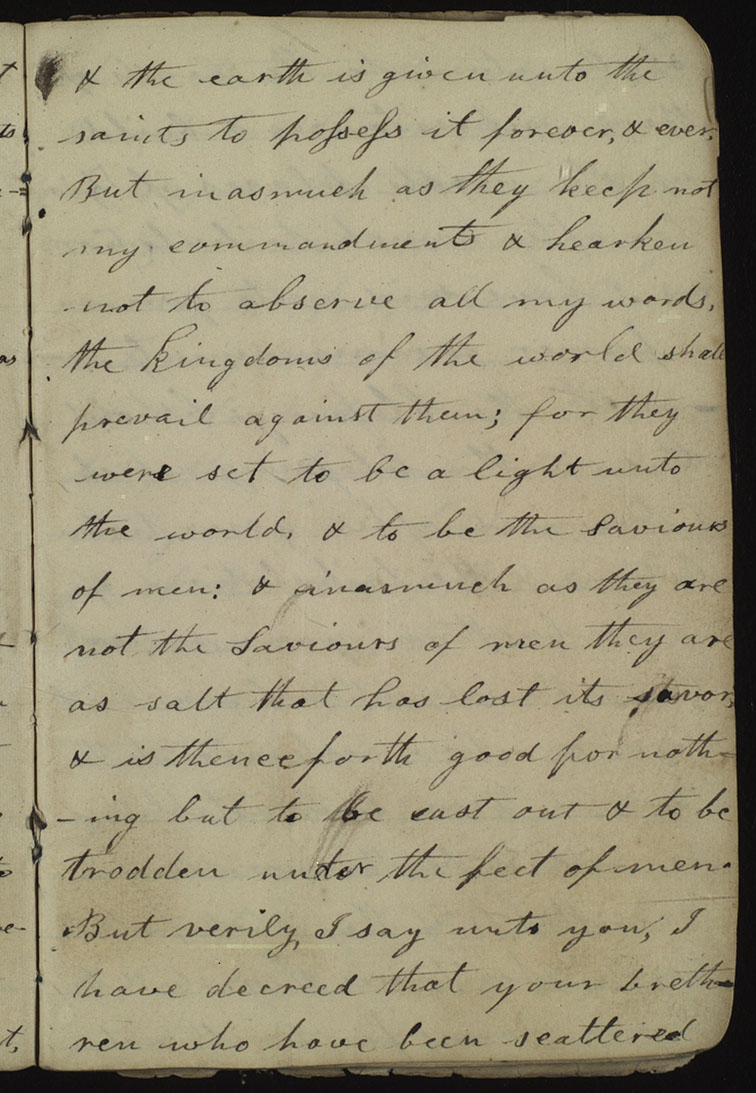 & the earth is given unto the
saints to possess it forever, & ever.
But inasmuch as they keep not
my commandments & hearken
not to observe all my words,
the kingdoms of the world shall
prevail against them; for they
were set to be a light unto
the world, & to be the Saviours
of men: & inasmuch as they are
not the Saviours of men they are
as salt that has lost its savor,
& is thenceforth good for noth-
-ing but to be cast out & to be
trodden under the feet of men.
But verily, I say unto you, I
have decreed that your breth-
ren who have been scattered